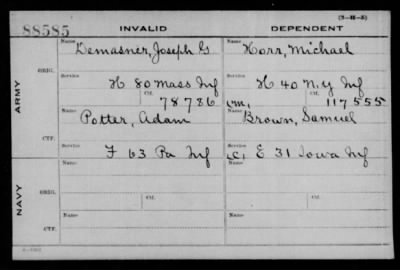 (3-H-5)
88585
INVALID DEPENDENT
ARMY
ORIG.
Name Name
Demasner, Joseph G Horr, Michael
Service Service
H 80 Mass Inf H 40 N.Y Inf
Ctf. 78786 (m, Ctf. 117555
CTF.
Name Name
Potter, Adam Brown, Samuel
Service Service
F 63 Pa Inf (c, E 31 Iowa Inf
NAVY
ORIG.
Name Name
Service Service
Ctf. Ctf.
CTF.
Name Name